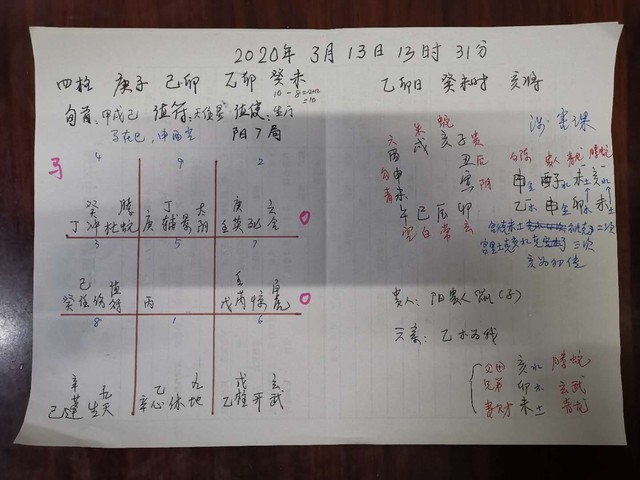 2020年 3月 13日 13时 31分
四柱 庚子 己卯 乙卯 癸未
10-8=2
=10
旬首:甲戌己 值符:天任星 值使:生门
马在巳,申酉空 阳7局
马
4 9 2
癸 腾 丁 太 庚 六
丁 冲 杜 蛇 庚 辅 景 阴 壬 英 死 合
3 5 7
己 值 壬 白
癸 任 伤 符 丙 戊 芮 惊 虎
8 1 6
辛 九 乙 九 戊 玄
己 蓬 生 天 辛 心 休 地 乙 柱 开 武
乙卯日 癸未时 亥将
涉害课
朱 蛇
六 酉 戌 亥 子 贵
勾 申 丑 后
青 未 寅 阴
午 巳 辰 卯
空 白 常 玄
勾陈 贵人 青龙 腾蛇
申金 子水 未土 亥水
乙木 申金 卯木 未土
二次
三次
亥为初传
贵人:阳贵人 鼠(子)
元素:乙木为我
父母 亥水 腾蛇
兄弟 卯木 玄武
妻财 未土 青龙